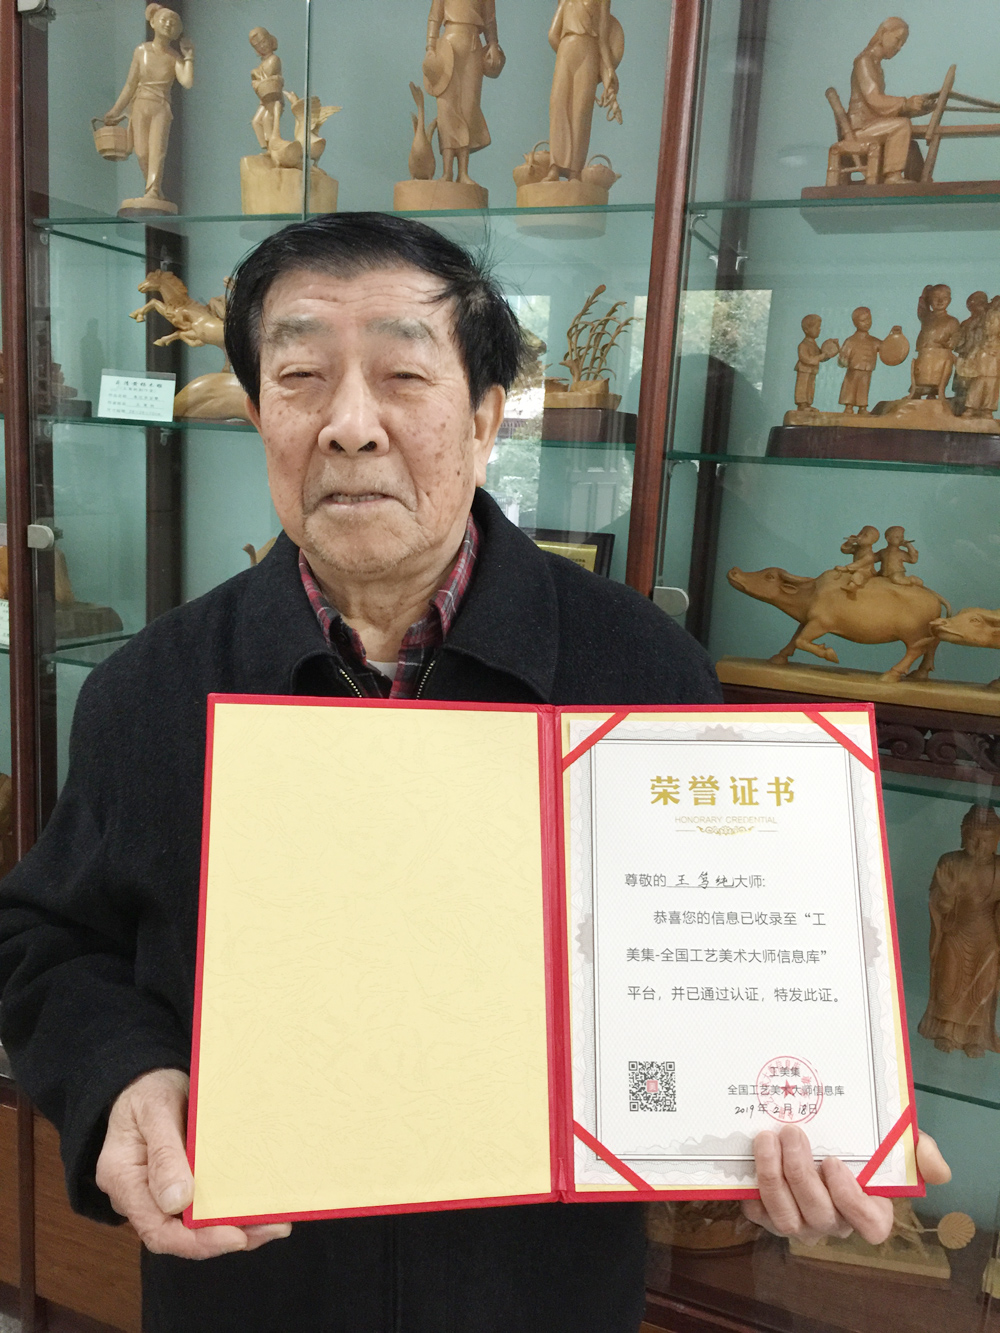 荣誉证书
HONORARY CREDENTIAL
尊敬的 王笃纯 大师:
恭喜您的信息已收录至“工
美集-全国工艺美术大师信息库”
平台，并已通过认证，特发此证。
工美集
全国工艺美术大师信息库
2019年2月18日